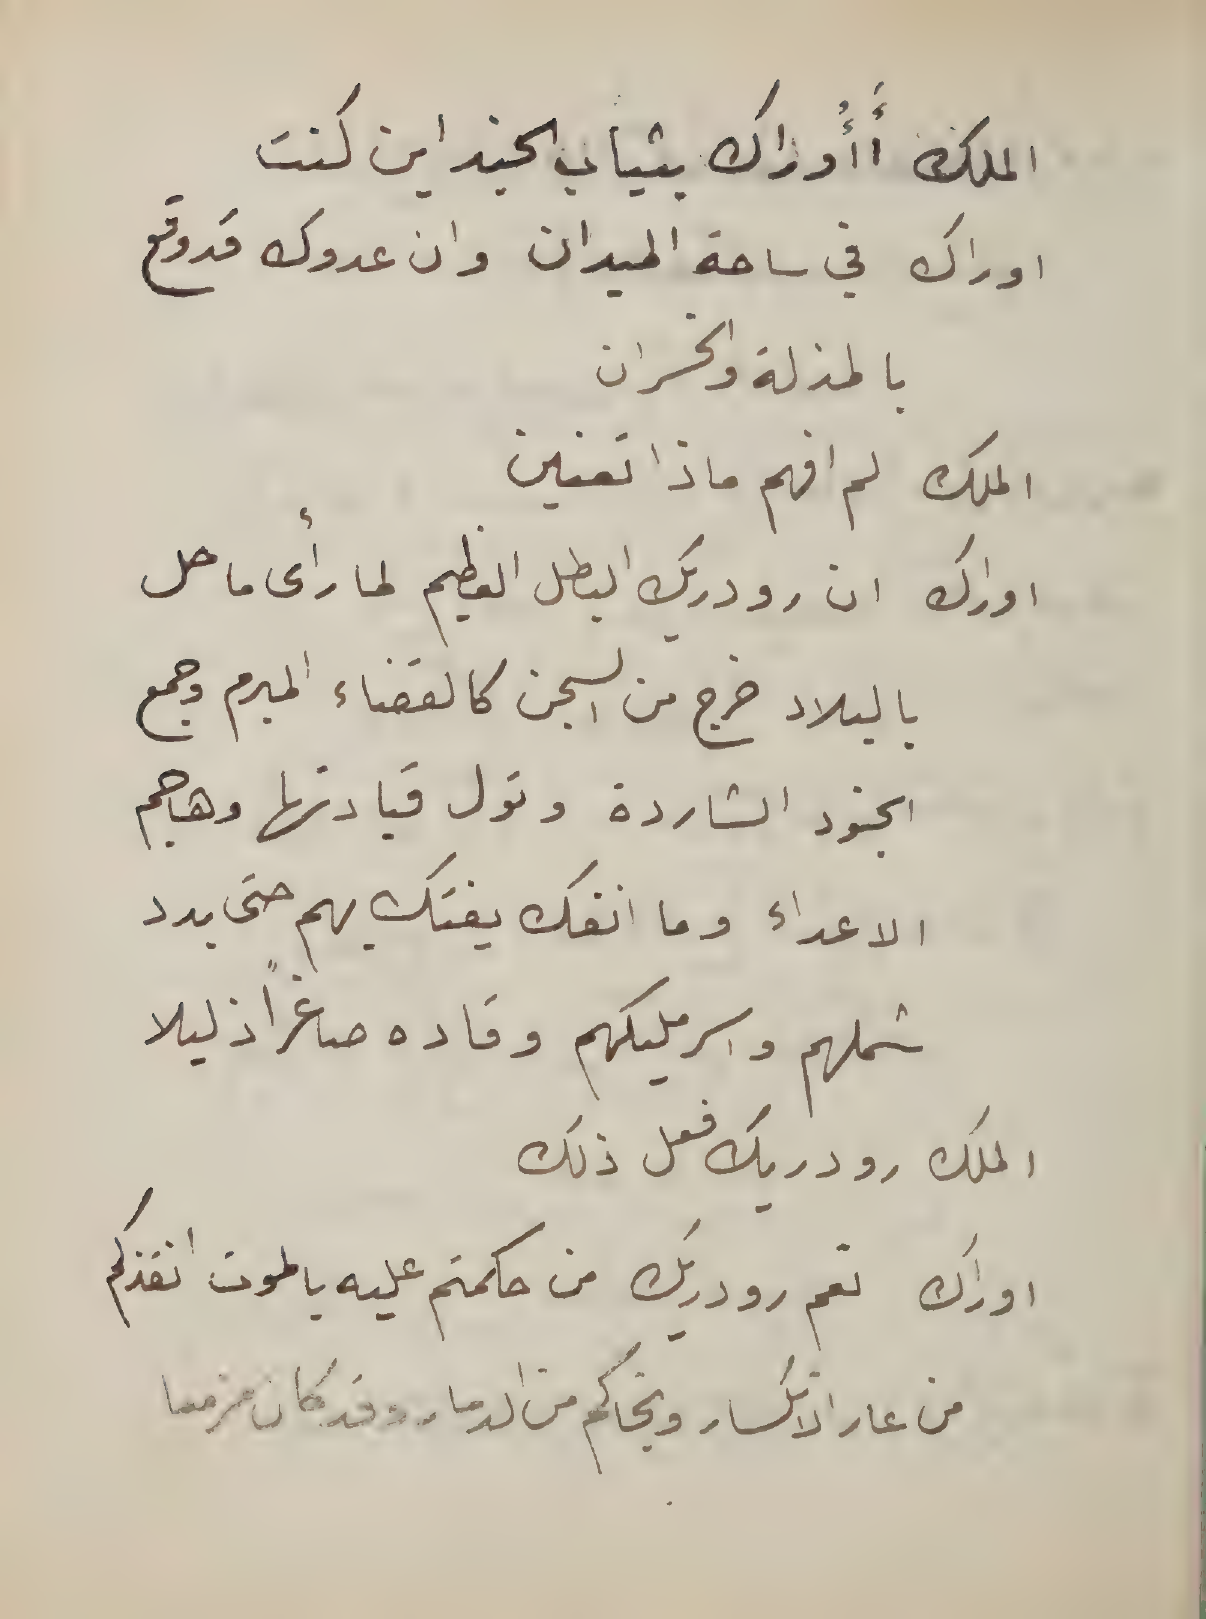 الملك أَأُوراك بثياب الجند اين كنت
اوراك في ساحة الميدان وان عدوك قد وقع
بالمذلة والخسران
الملك لم افهم ماذا تعنين
اوراك ان رودريك البطل العظيم لما رأى ما حل
بالبلاد خرج من السجن كالقضاء المبرم وجمع
الجنود الشاردة وتول قيادتها وهاجم
الاعداء وما انفك يفتك بهم حتى بدد
شملهم واسر مليكهم وقاده صاغراً ذليلا
الملك رودريك فعل ذلك
اوراك نعم رودريك من حكمتم عليه بالموت انقذكم
من عار الانكسار ونجاكم من الدمار وقد كان مزمعا